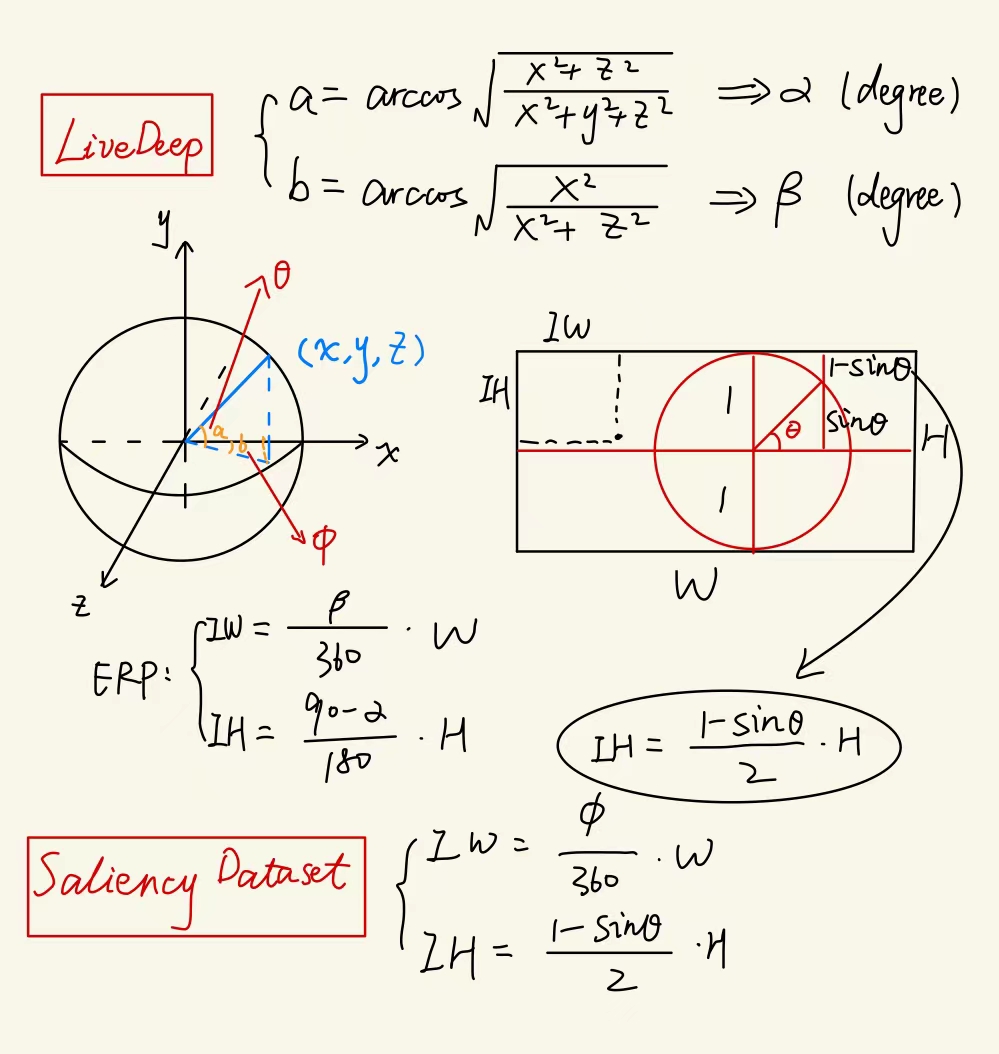 LiveDeep
a = arccos √((x²+z²)/(x²+y²+z²)) ⇒ α (degree)
b = arccos √(x²/(x²+z²)) ⇒ β (degree)
y
θ
(x,y,z)
a
b
x
φ
z
IW
IH
1-sinθ
1
sinθ
θ
H
1
W
ERP:
IW = β/360 · W
IH = (90-α)/180 · H
IH = (1-sinθ)/2 · H
Saliency Dataset
IW = φ/360 · W
IH = (1-sinθ)/2 · H